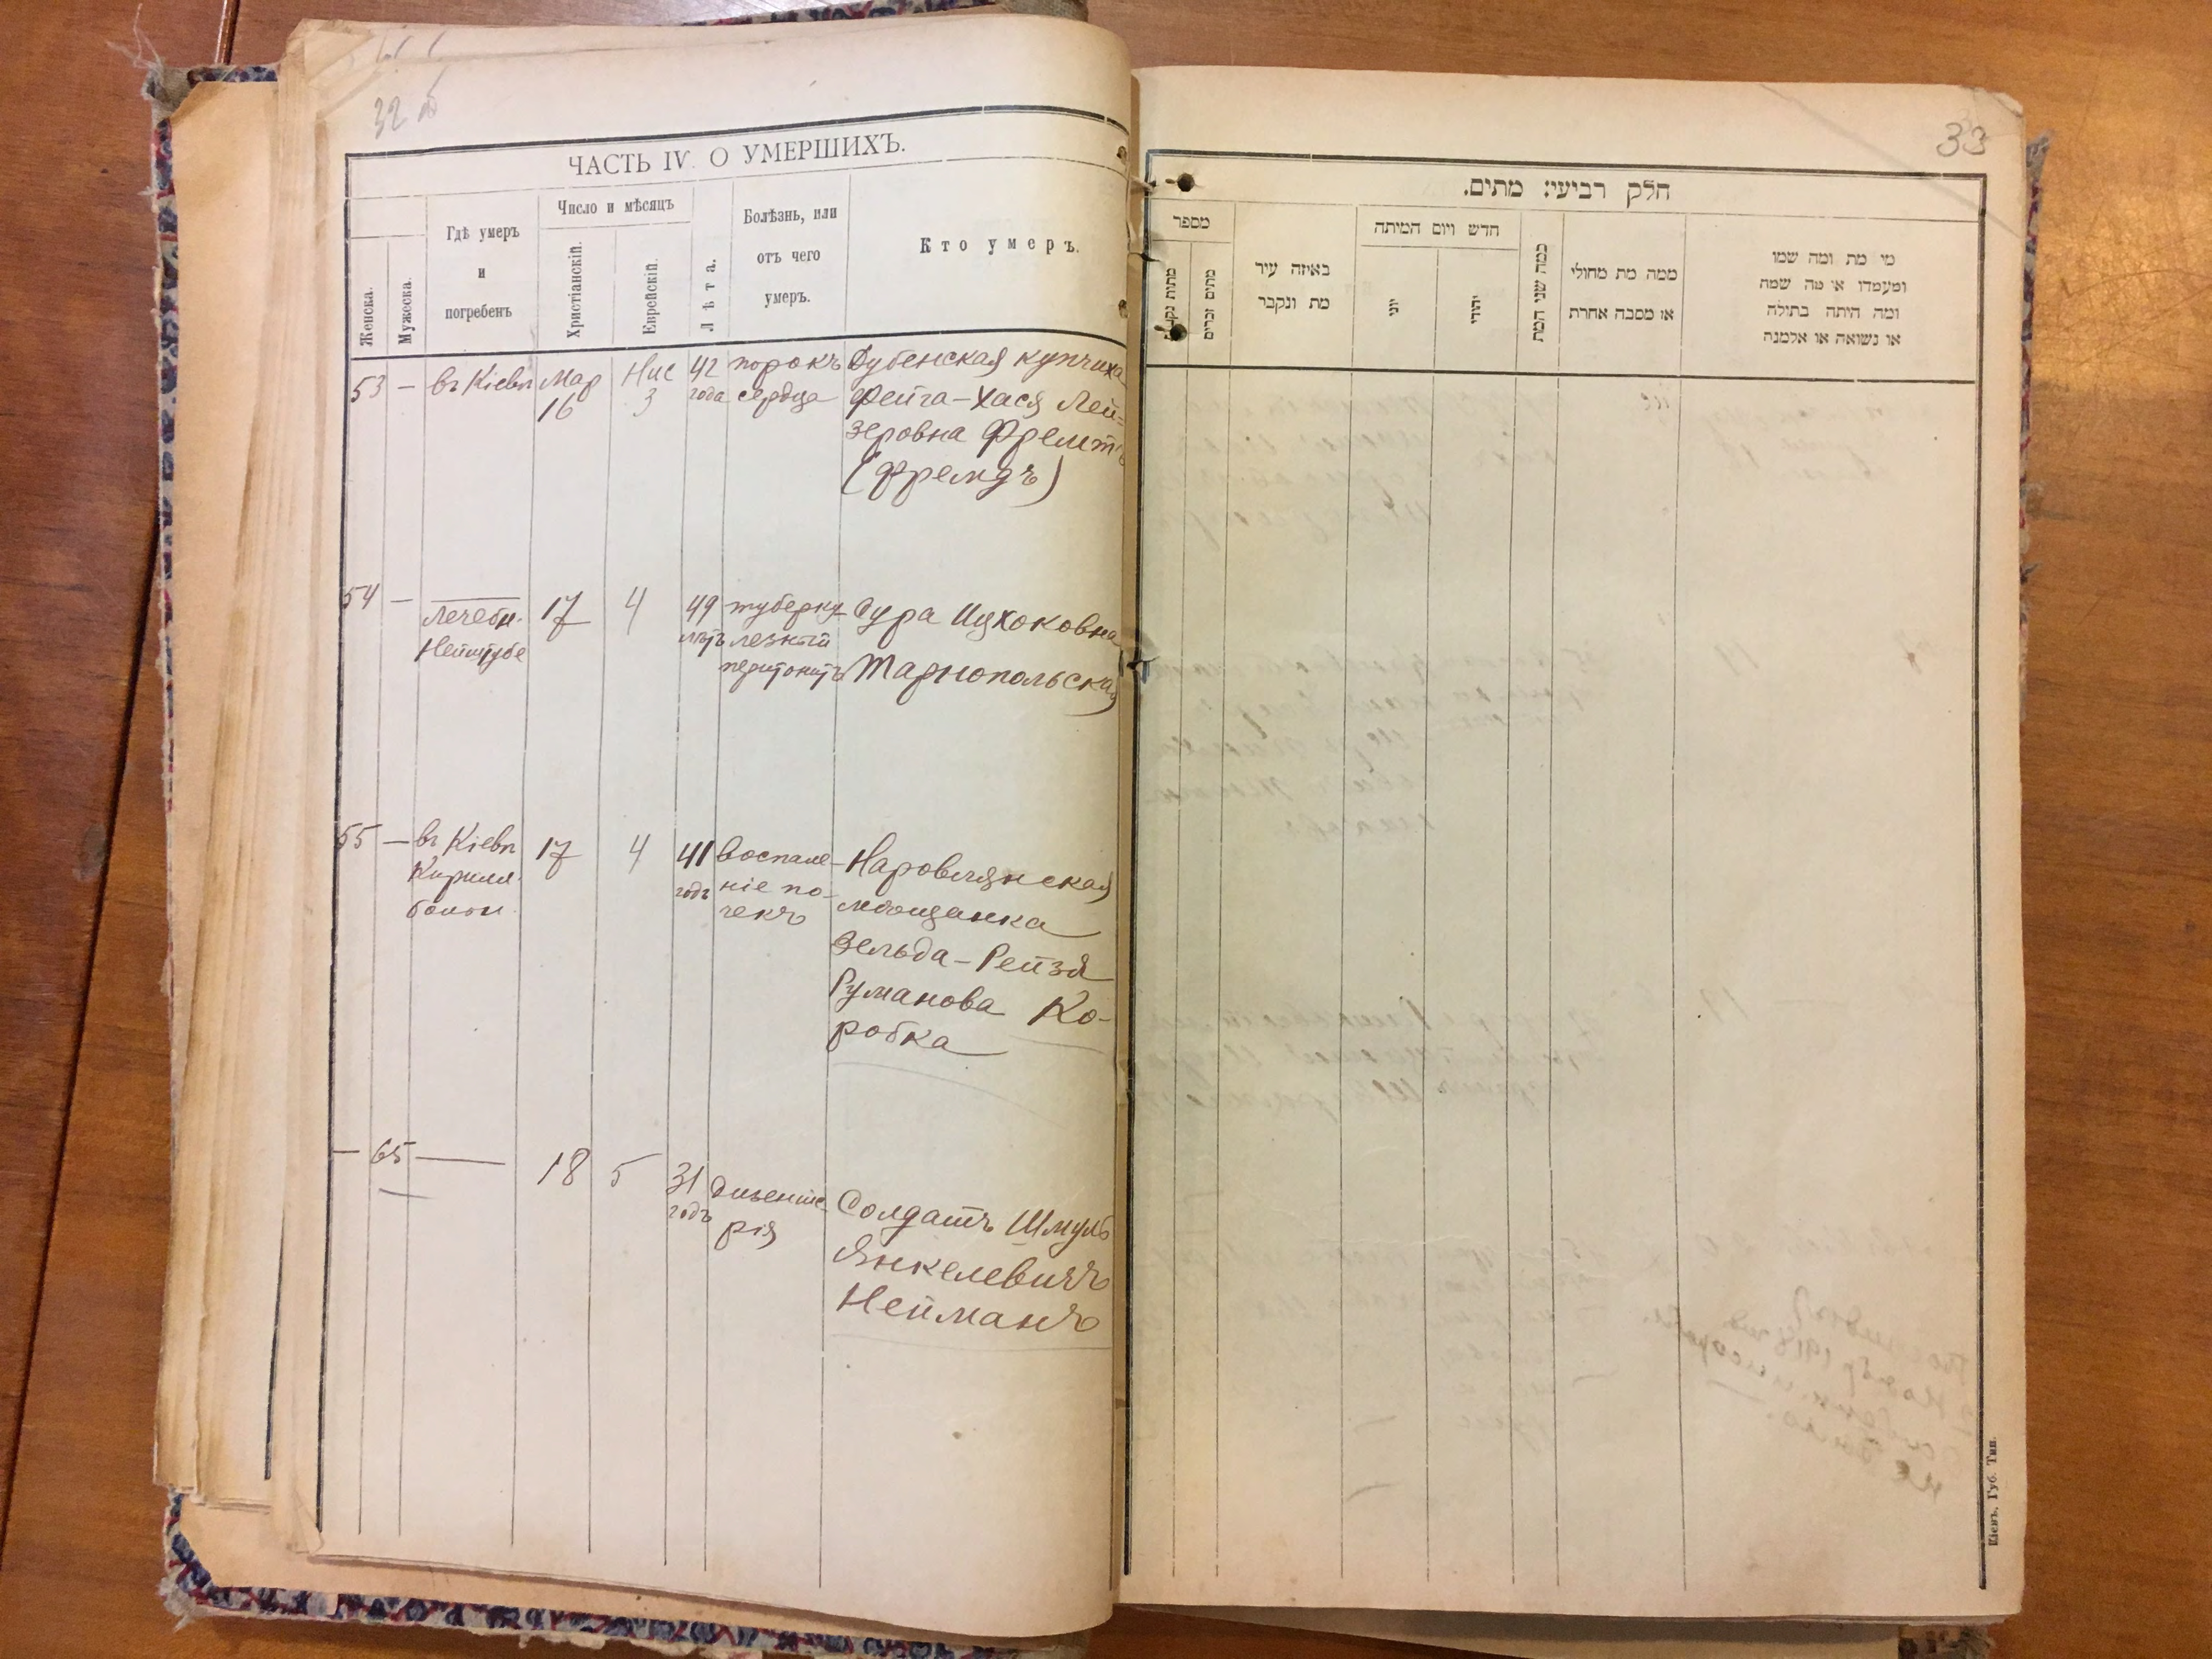 32 б
ЧАСТЬ IV. О УМЕРШИХЪ.
Женска.
Мужеска.
Гдѣ умеръ
и
погребенъ
Число и мѣсяцъ
Христіанскій.
Еврейскій.
Лѣта.
Болѣзнь, или
отъ чего
умеръ.
Кто умеръ.
53 — въ Кіевѣ Мар 16 Нис 3 42 года порокъ сердца
Дубенская купчиха
Фейга-Хася Лей-
зеровна Фремтъ
(Фремдъ)
54 — Лечебн. 17 4 49 лѣтъ туберку
лезный
перитонитъ
Сура Ицхоковна
Тарнопольская
55 — въ Кіевѣ
Кирилл.
больн.
17 4 41 годъ воспале-
ніе по-
чекъ
Наровлянская
мѣщанка
Зельда-Рейзя
Гуманова Ко-
робка
— 65 — 18 5 31 годъ дизенте
рія
Солдатъ Шмуль
Янкелевичъ
Нейманъ
33
חלק רביעי: מתים.
מספר
מתים זכרים
באיזה עיר
מת ונקבר
חדש ויום המיתה
יוני
יהודי
כמה שני המת
ממה מת מחולי
או מסבה אחרת
מי מת ומה שמו
ומעמדו או מה שמה
ומה היתה בתולה
או נשואה או אלמנה
Кіевъ, Губ. Тип.